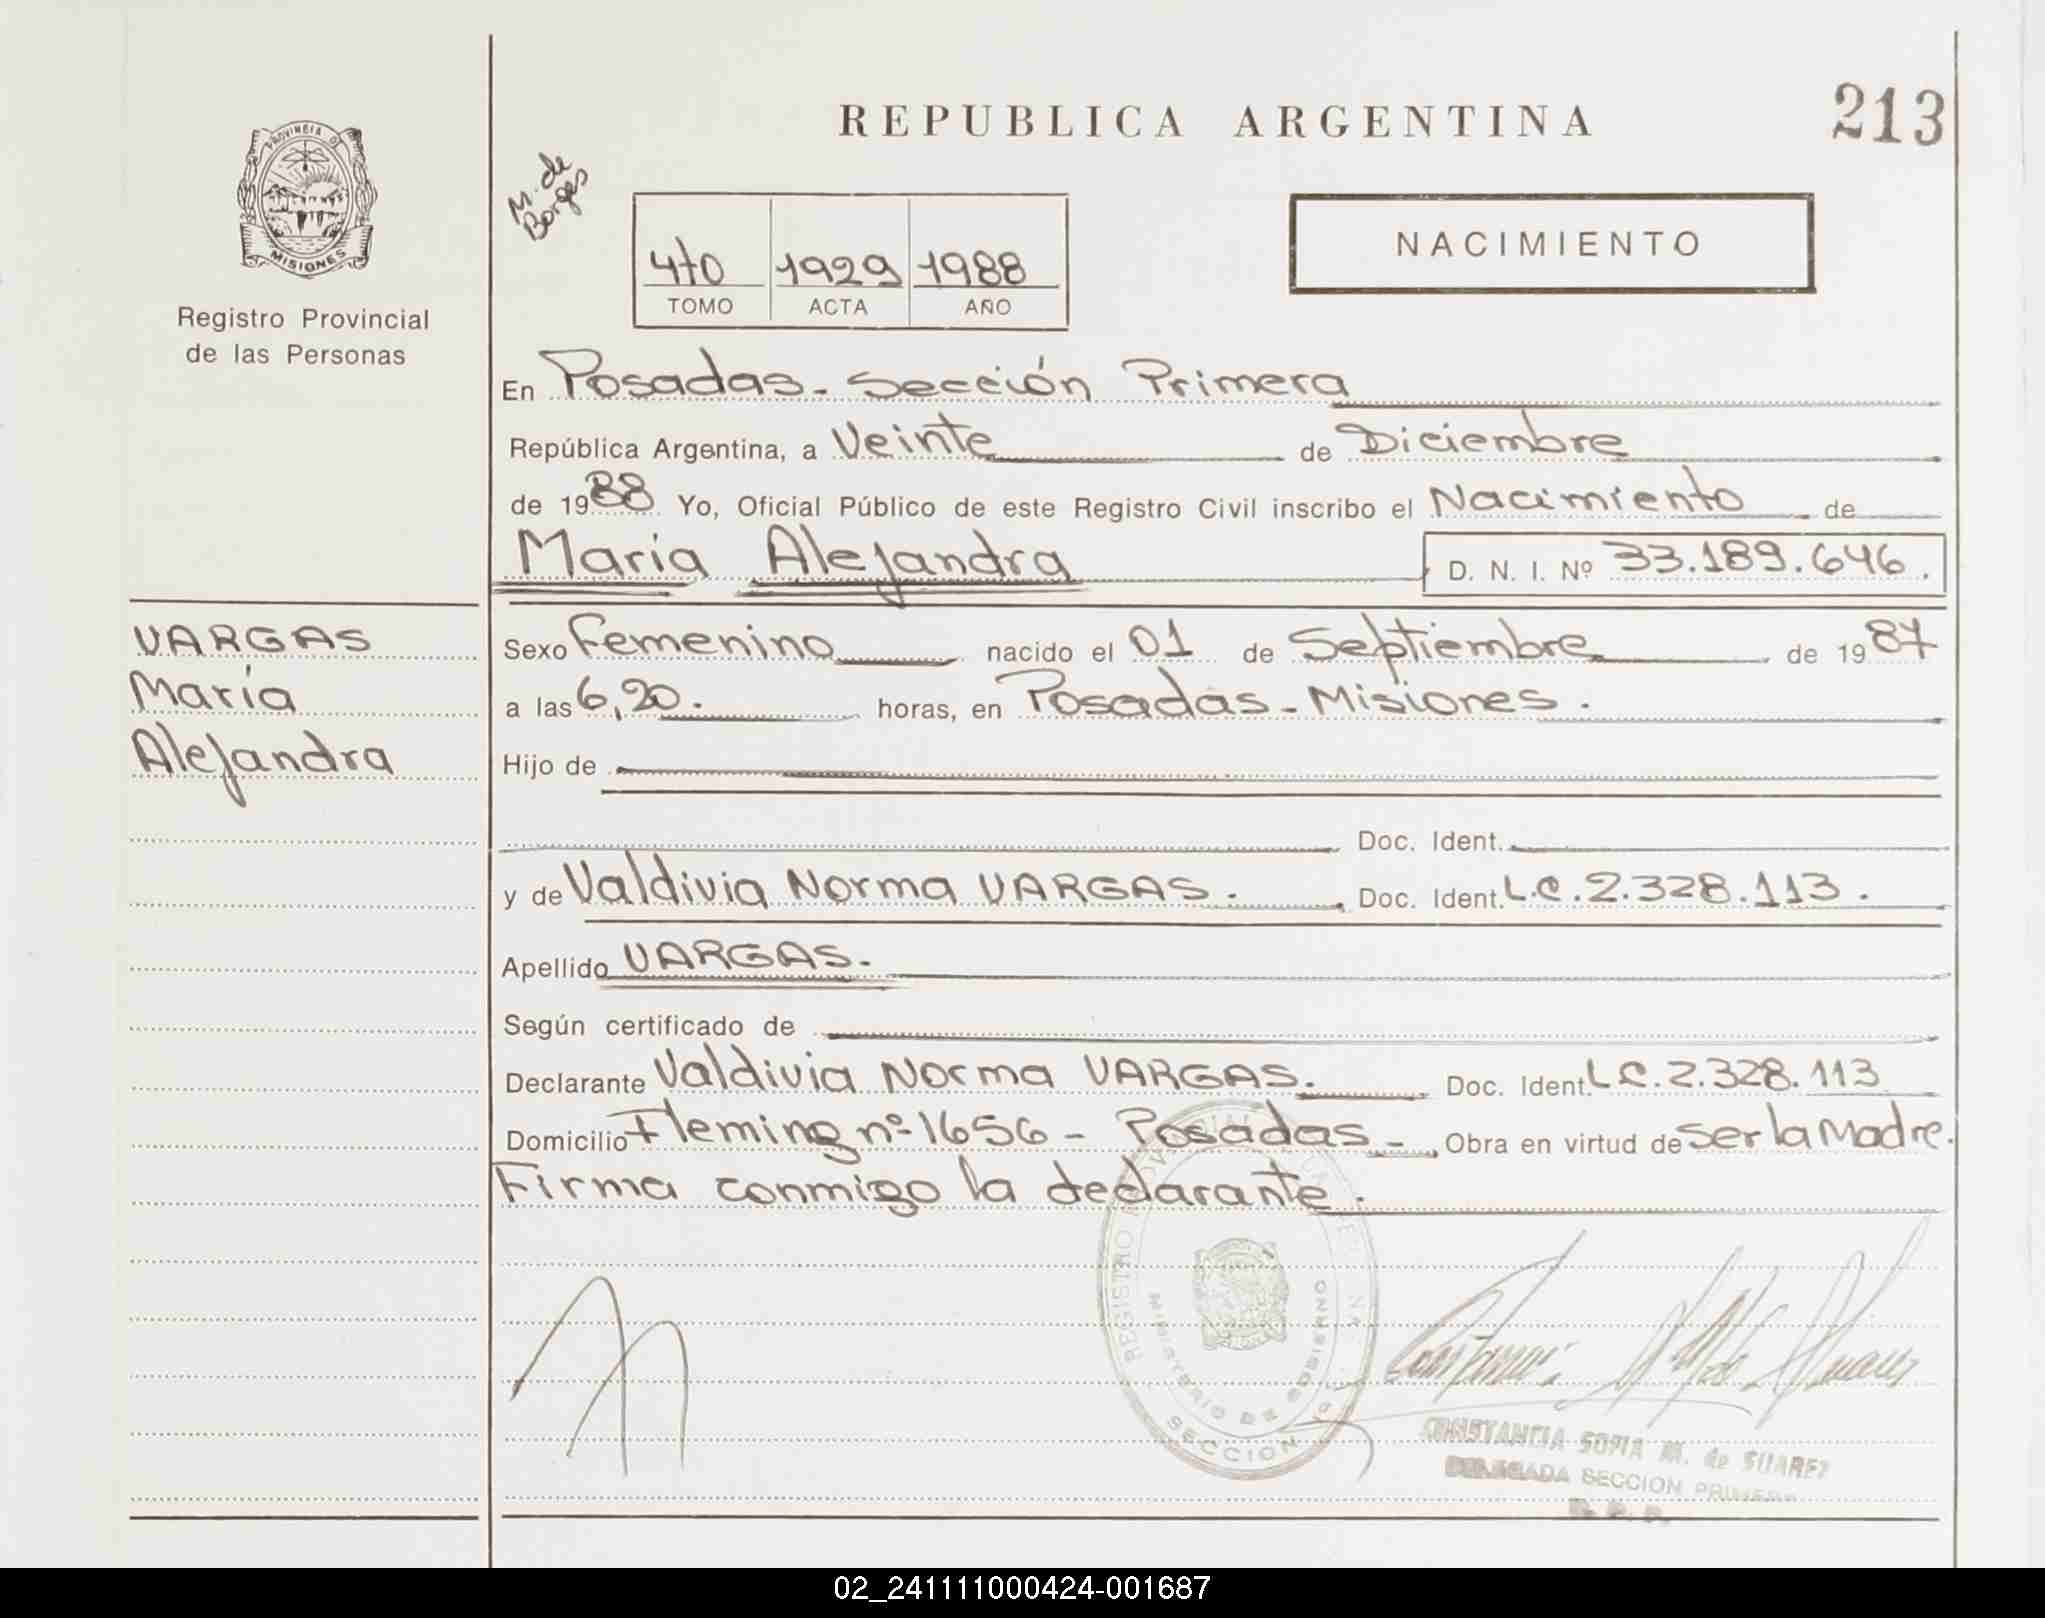 REPUBLICA ARGENTINA
213
PROVINCIA DE
MISIONES
Registro Provincial
de las Personas
M. de
Borges
4to 1929 1988
TOMO ACTA AÑO
NACIMIENTO
En Posadas - Sección Primera
República Argentina, a Veinte de Diciembre
de 1988 Yo, Oficial Público de este Registro Civil inscribo el Nacimiento de
María Alejandra D. N. I. Nº 33.189.646.
VARGAS
María
Alejandra
Sexo Femenino nacido el 01 de Septiembre de 1987
a las 6,20. horas, en Posadas - Misiones.
Hijo de
Doc. Ident.
y de Valdivia Norma VARGAS. Doc. Ident. L.C. 2.328.113.
Apellido VARGAS.
Según certificado de
Declarante Valdivia Norma VARGAS. Doc. Ident. L.C. 2.328.113
Domicilio Fleming nº 1656 - Posadas - Obra en virtud de ser la Madre.
Firma conmigo la declarante.
REGISTRO
MINISTERIO DE GOBIERNO
SECCION
CONSTANCIA SOFIA M. de SUAREZ
DELEGADA SECCION PRIMERA
R. P. P.
02_241111000424-001687